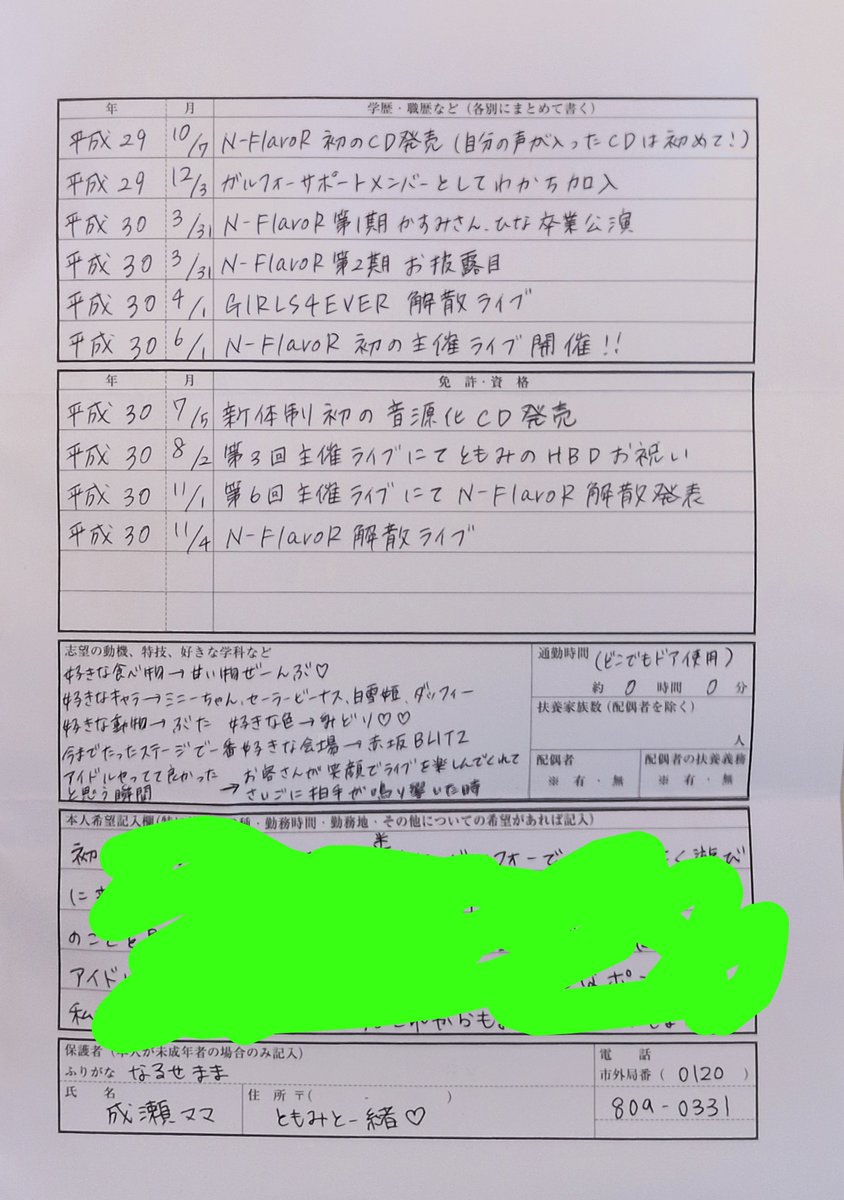 年 月 学歴・職歴など(各別にまとめて書く)
平成 29 10/7 N-FlavoR 初のCD発売(自分の声が入ったCDは初めて!)
平成 29 12/3 ガルフォーサポートメンバーとしてわかち加入
平成 30 3/31 N-FlavoR 第1期 かすみさん、ひな 卒業公演
平成 30 3/31 N-FlavoR 第2期 お披露目
平成 30 4/1 GIRLS4EVER 解散ライブ
平成 30 6/1 N-FlavoR 初の主催ライブ開催!!
年 月 免許・資格
平成 30 7/5 新体制 初の音源化CD発売
平成 30 8/2 第3回主催ライブにてともみのHBDお祝い
平成 30 11/1 第6回主催ライブにて N-FlavoR 解散発表
平成 30 11/4 N-FlavoR 解散ライブ
志望の動機、特技、好きな学科など
好きな食べ物→甘い物ぜーんぶ♡
好きなキャラ→ミニーちゃん、セーラービーナス、白雪姫、ダッフィー
好きな動物→ぶた 好きな色→みどり♡♡
今までたったステージで一番好きな会場→赤坂BLITZ
アイドルやってて良かったと思う瞬間→お客さんが笑顔でライブを楽しんでくれてさいごに拍手が鳴り響いた時
通勤時間(どこでもドア使用)
約 0 時間 0 分
扶養家族数(配偶者を除く)
人
配偶者 配偶者の扶養義務
※ 有・無 ※ 有・無
本人希望記入欄(特に 種・勤務時間・勤務地・その他についての希望があれば記入)
初
に
のこと
アイド
私
保護者(本人が未成年者の場合のみ記入)
ふりがな なるせまま
氏名 成瀬ママ
住所 〒( - )
ともみと一緒♡
電話
市外局番(0120)
809-0331